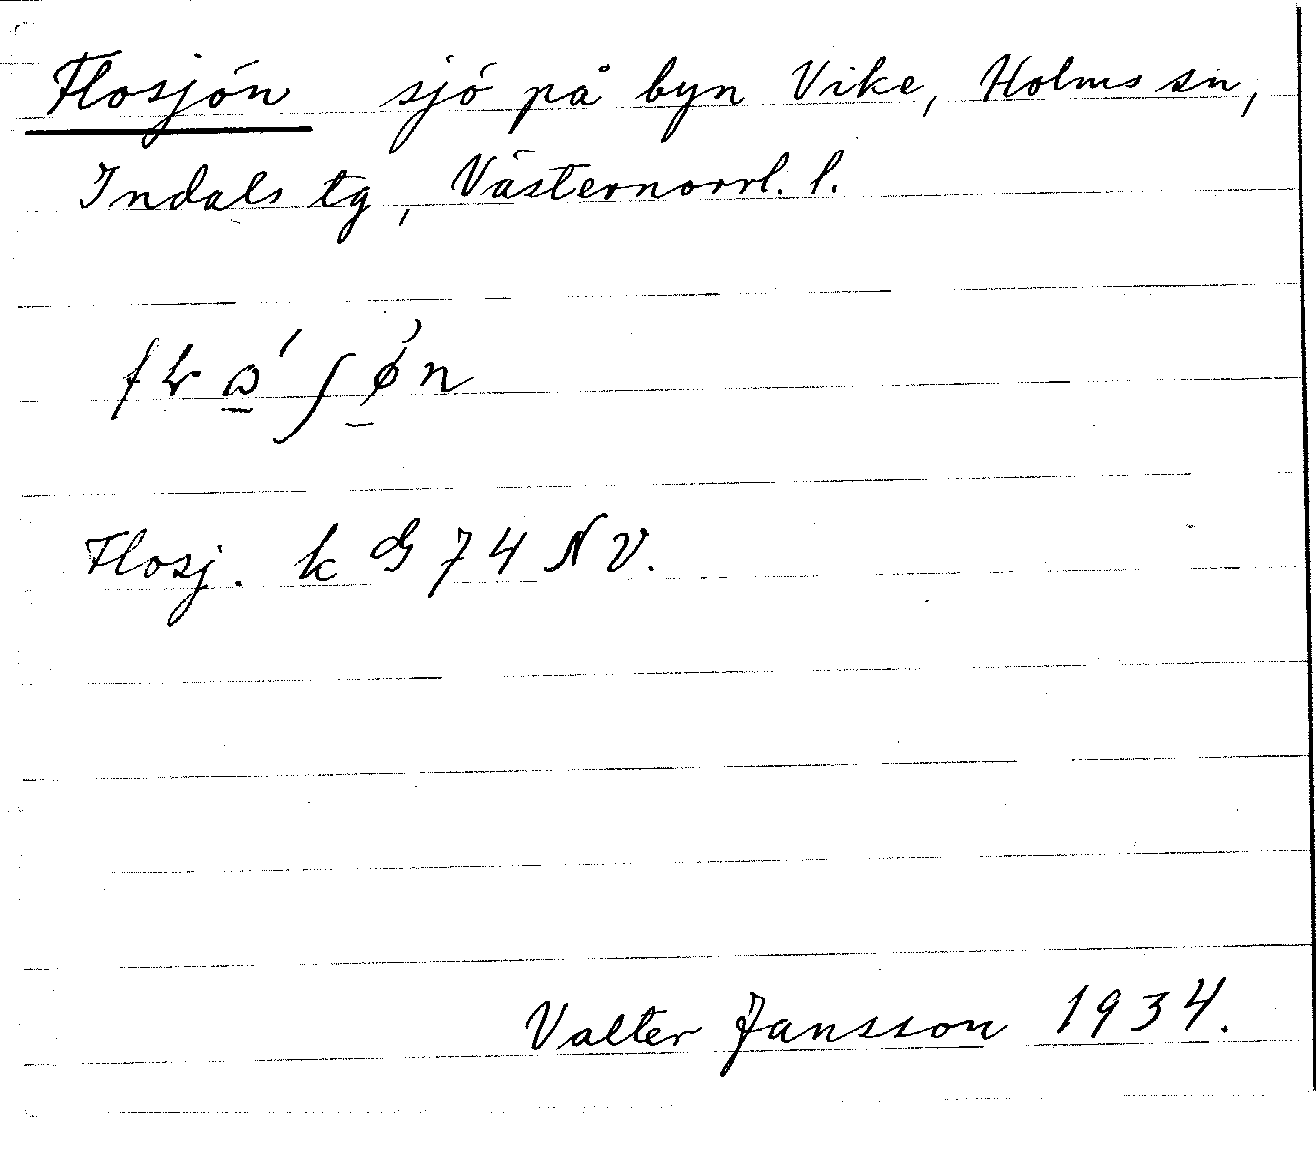 Flosjön sjö på byn Vike, Holms sn,
Indals tg, Västernorrl. l.
Flosj. k G 74 NV.
Valter Jansson 1934.